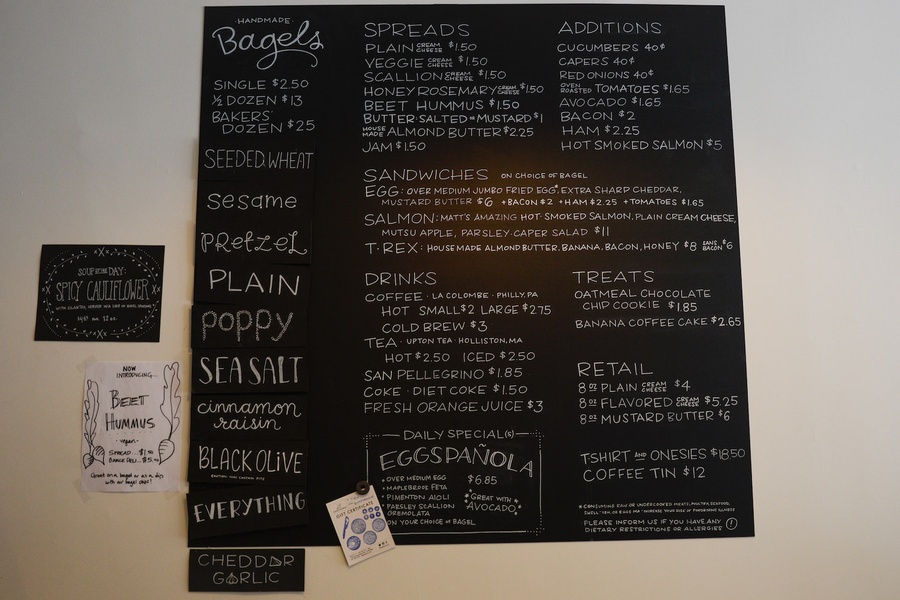 ·HANDMADE·
Bagels
SINGLE $2.50
½ DOZEN $13
BAKERS'
DOZEN $25
SEEDED WHEAT
sesame
PRETZEL
PLAIN
POPPY
SEA SALT
cinnamon
raisin
BLACK OLIVE
EVERYTHING
CHEDDAR
GARLIC
SPREADS
PLAIN CREAM CHEESE $1.50
VEGGIE CREAM CHEESE $1.50
SCALLION CREAM CHEESE $1.50
HONEY ROSEMARY CREAM CHEESE $1.50
BEET HUMMUS $1.50
BUTTER·SALTED OR MUSTARD $1
HOUSE MADE ALMOND BUTTER $2.25
JAM $1.50
ADDITIONS
CUCUMBERS 40¢
CAPERS 40¢
RED ONIONS 40¢
OVEN ROASTED TOMATOES $1.65
AVOCADO $1.65
BACON $2
HAM $2.25
HOT SMOKED SALMON $5
SANDWICHES ON CHOICE OF BAGEL
EGG: OVER MEDIUM JUMBO FRIED EGG*, EXTRA SHARP CHEDDAR,
MUSTARD BUTTER $6 +BACON $2 +HAM $2.25 +TOMATOES $1.65
SALMON: MATT'S AMAZING HOT SMOKED SALMON, PLAIN CREAM CHEESE,
MUTSU APPLE, PARSLEY-CAPER SALAD $11
T·REX: HOUSEMADE ALMOND BUTTER, BANANA, BACON, HONEY $8 SANS BACON $6
DRINKS
COFFEE · LA COLOMBE · PHILLY, PA
HOT SMALL $2 LARGE $2.75
COLD BREW $3
TEA · UPTON TEA · HOLLISTON, MA
HOT $2.50 ICED $2.50
SAN PELLEGRINO $1.85
COKE · DIET COKE $1.50
FRESH ORANGE JUICE $3
TREATS
OATMEAL CHOCOLATE
CHIP COOKIE $1.85
BANANA COFFEE CAKE $2.65
RETAIL
8 OZ PLAIN CREAM CHEESE $4
8 OZ FLAVORED CREAM CHEESE $5.25
8 OZ MUSTARD BUTTER $6
TSHIRT AND ONESIES $18.50
COFFEE TIN $12
DAILY SPECIAL(S)
EGGSPAÑOLA
• OVER MEDIUM EGG $6.85
• MAPLEBROOK FETA
• PIMENTON AIOLI
• PARSLEY SCALLION
GREMOLATA
ON YOUR CHOICE OF BAGEL
*GREAT WITH*
*AVOCADO*
* CONSUMING RAW OR UNDERCOOKED MEATS, POULTRY, SEAFOOD,
SHELLFISH, OR EGGS MAY INCREASE YOUR RISK OF FOODBORNE ILLNESS
PLEASE INFORM US IF YOU HAVE ANY
DIETARY RESTRICTIONS OR ALLERGIES !
GIFT CERTIFICATE
SOUP OF THE DAY:
SPICY CAULIFLOWER
NOW
INTRODUCING...
BEET
HUMMUS
-vegan-
SPREAD
Great on a bagel or as a dip